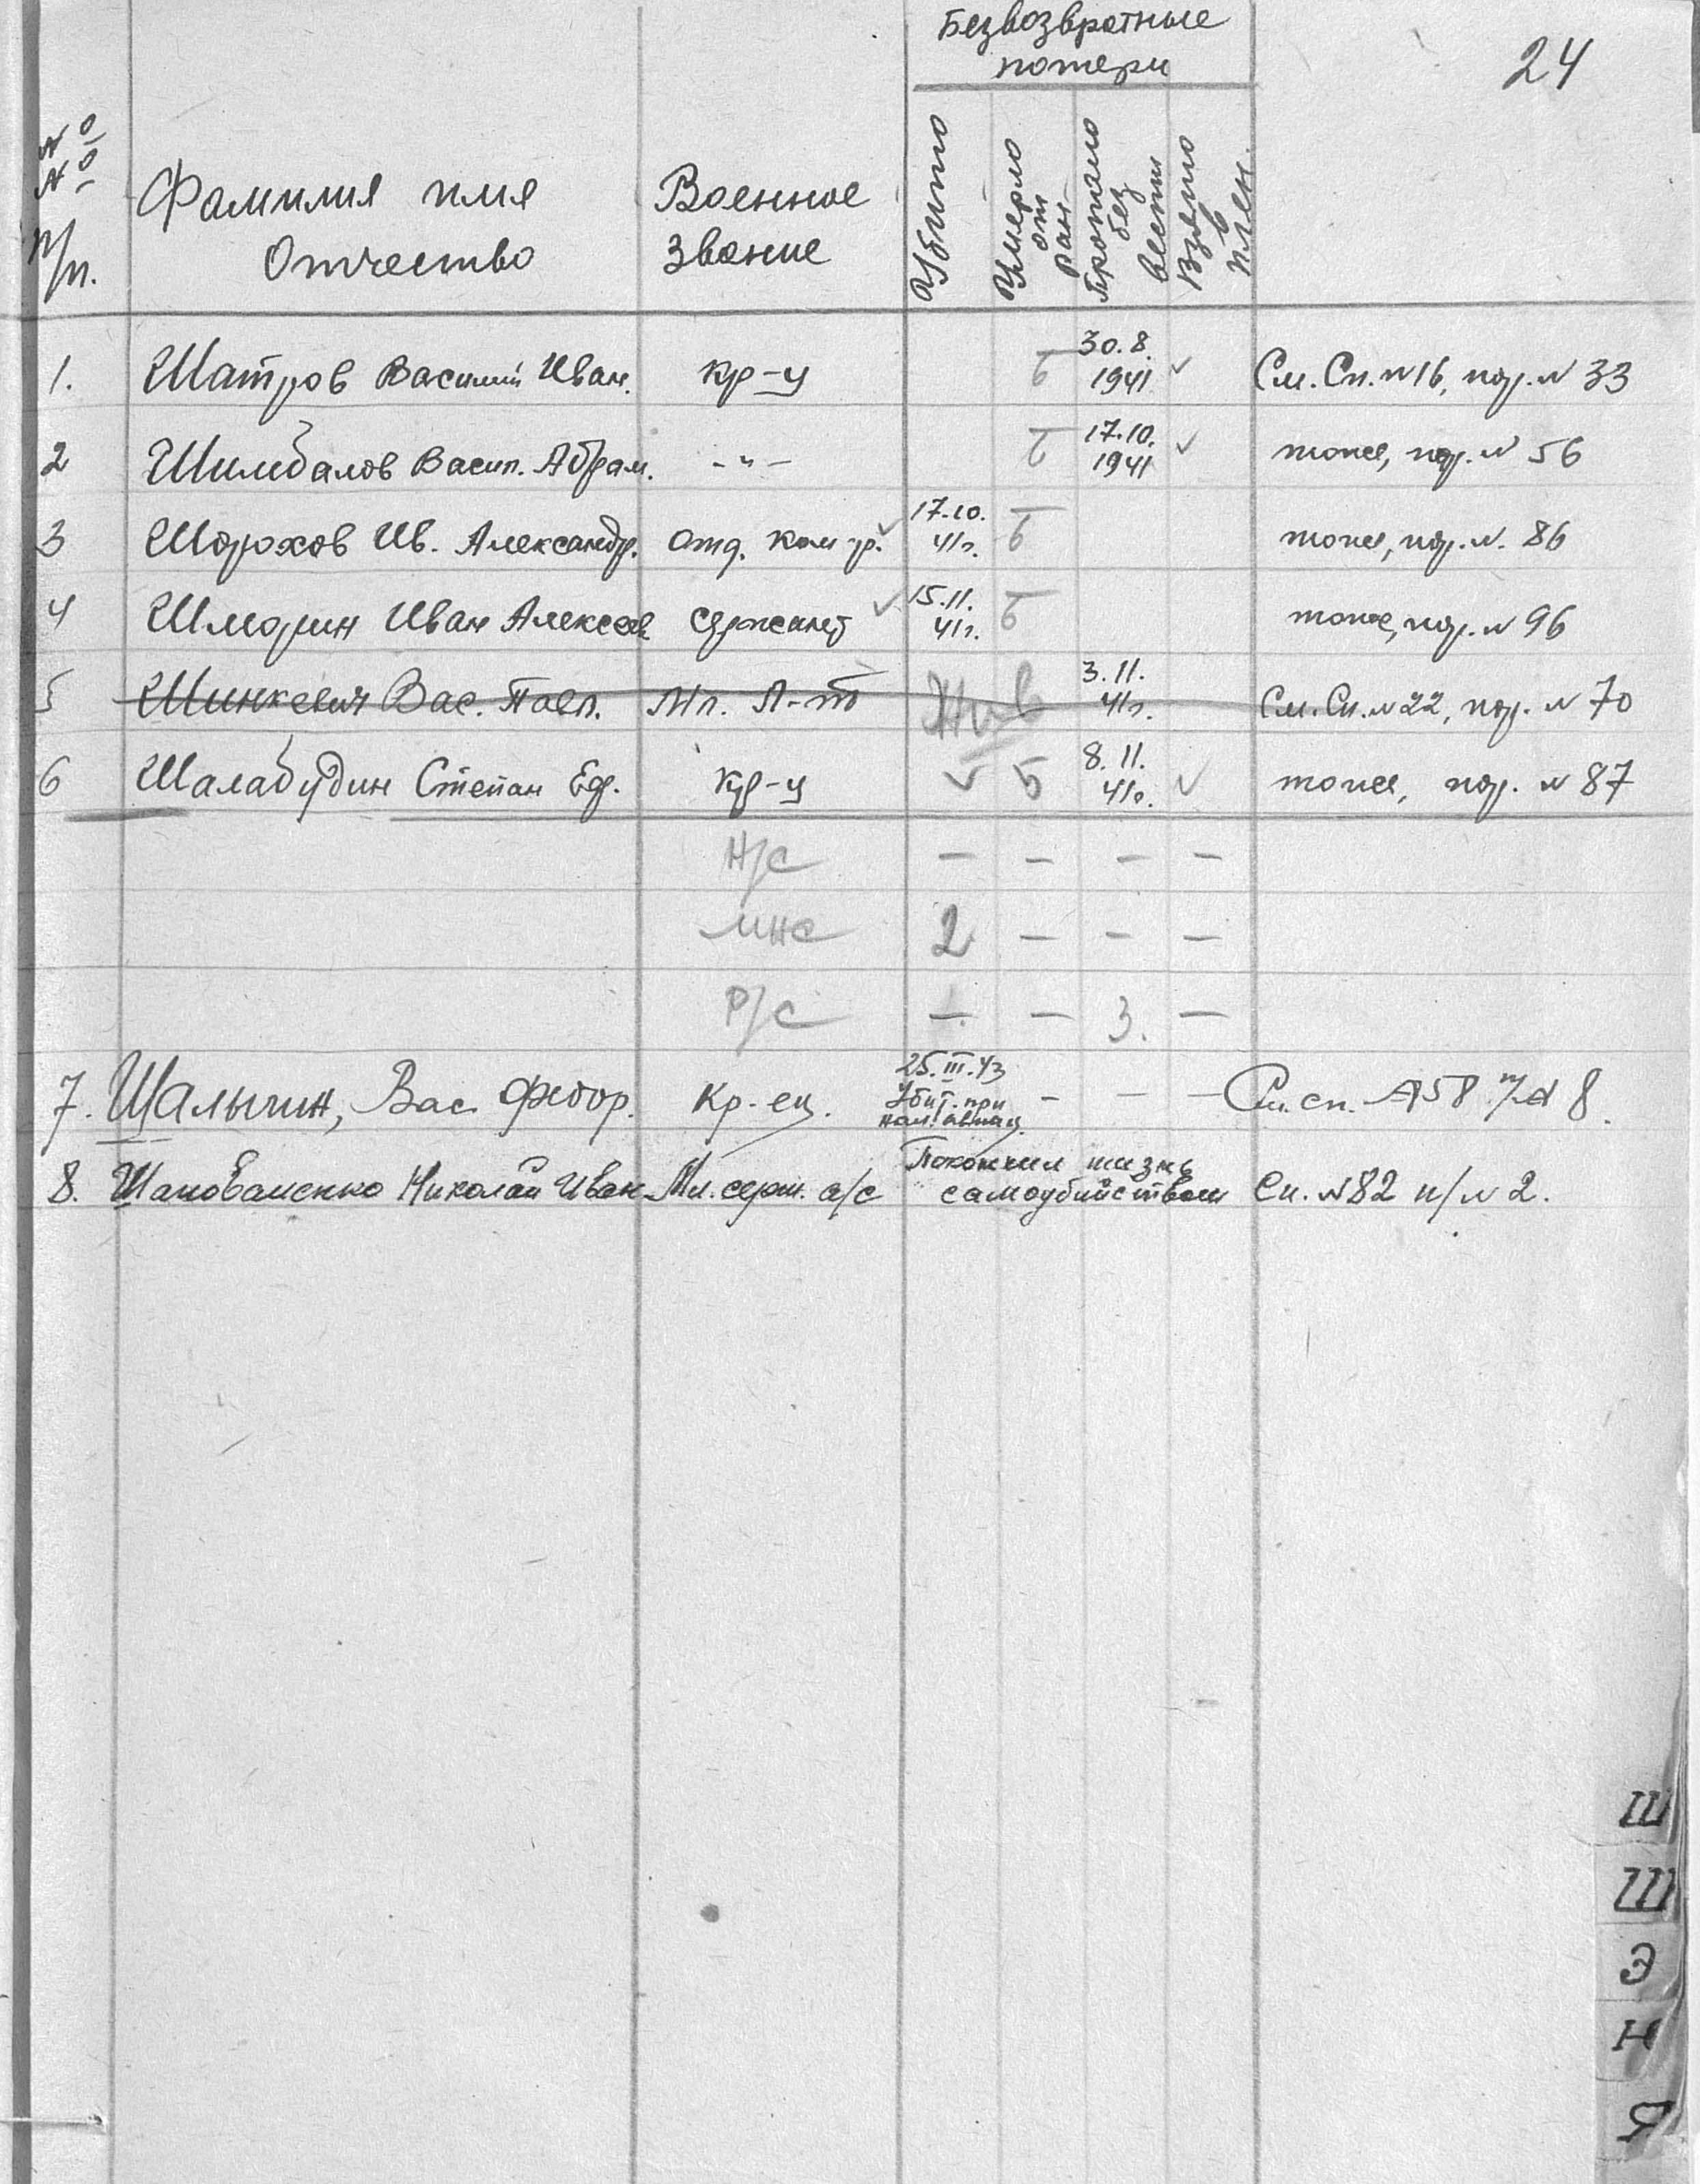 24
Безвозвратные
потери
№ №
п/п.
Фамилия имя
Отчество
Военное
звание
Убито
Умерло от ран
Пропало без вести
Взято в плен.
1. Шатров Василий Иван. кр-ц б 30.8. 1941 См. Сп. №16, пор. № 33
2 Шимбалов Васил. Абрам. -"- б 17.10. 1941 тоже, пор. № 56
3 Шорохов Ив. Александр. отд. ком-р. 17.10. 41г. б тоже, пор. №. 86
4 Шморин Иван Алексеев сержант 15.11. 41г. б тоже, пор. № 96
5 Шинкевич Вас. Павл. Мл. Л-т Жив 3.11. 41г. См. Сп. №22, пор. № 70
6 Шалабудин Степан Ефр. кр-ц б 8.11. 41г. тоже, пор. № 87
Н/С — — — —
МНС 2 — — —
Р/С — — 3. —
7. Щалычин, Вас. Федор. Кр-ец. 25.III.43 Убит. при нал. авиац. — — — См. сп. №58 п/№ 8.
8. Шаповаленко Николай Иван Мл. серж. а/с Покончил жизнь
самоубийством Сп. №82 п/№ 2.
Ш
Щ
Э
Я